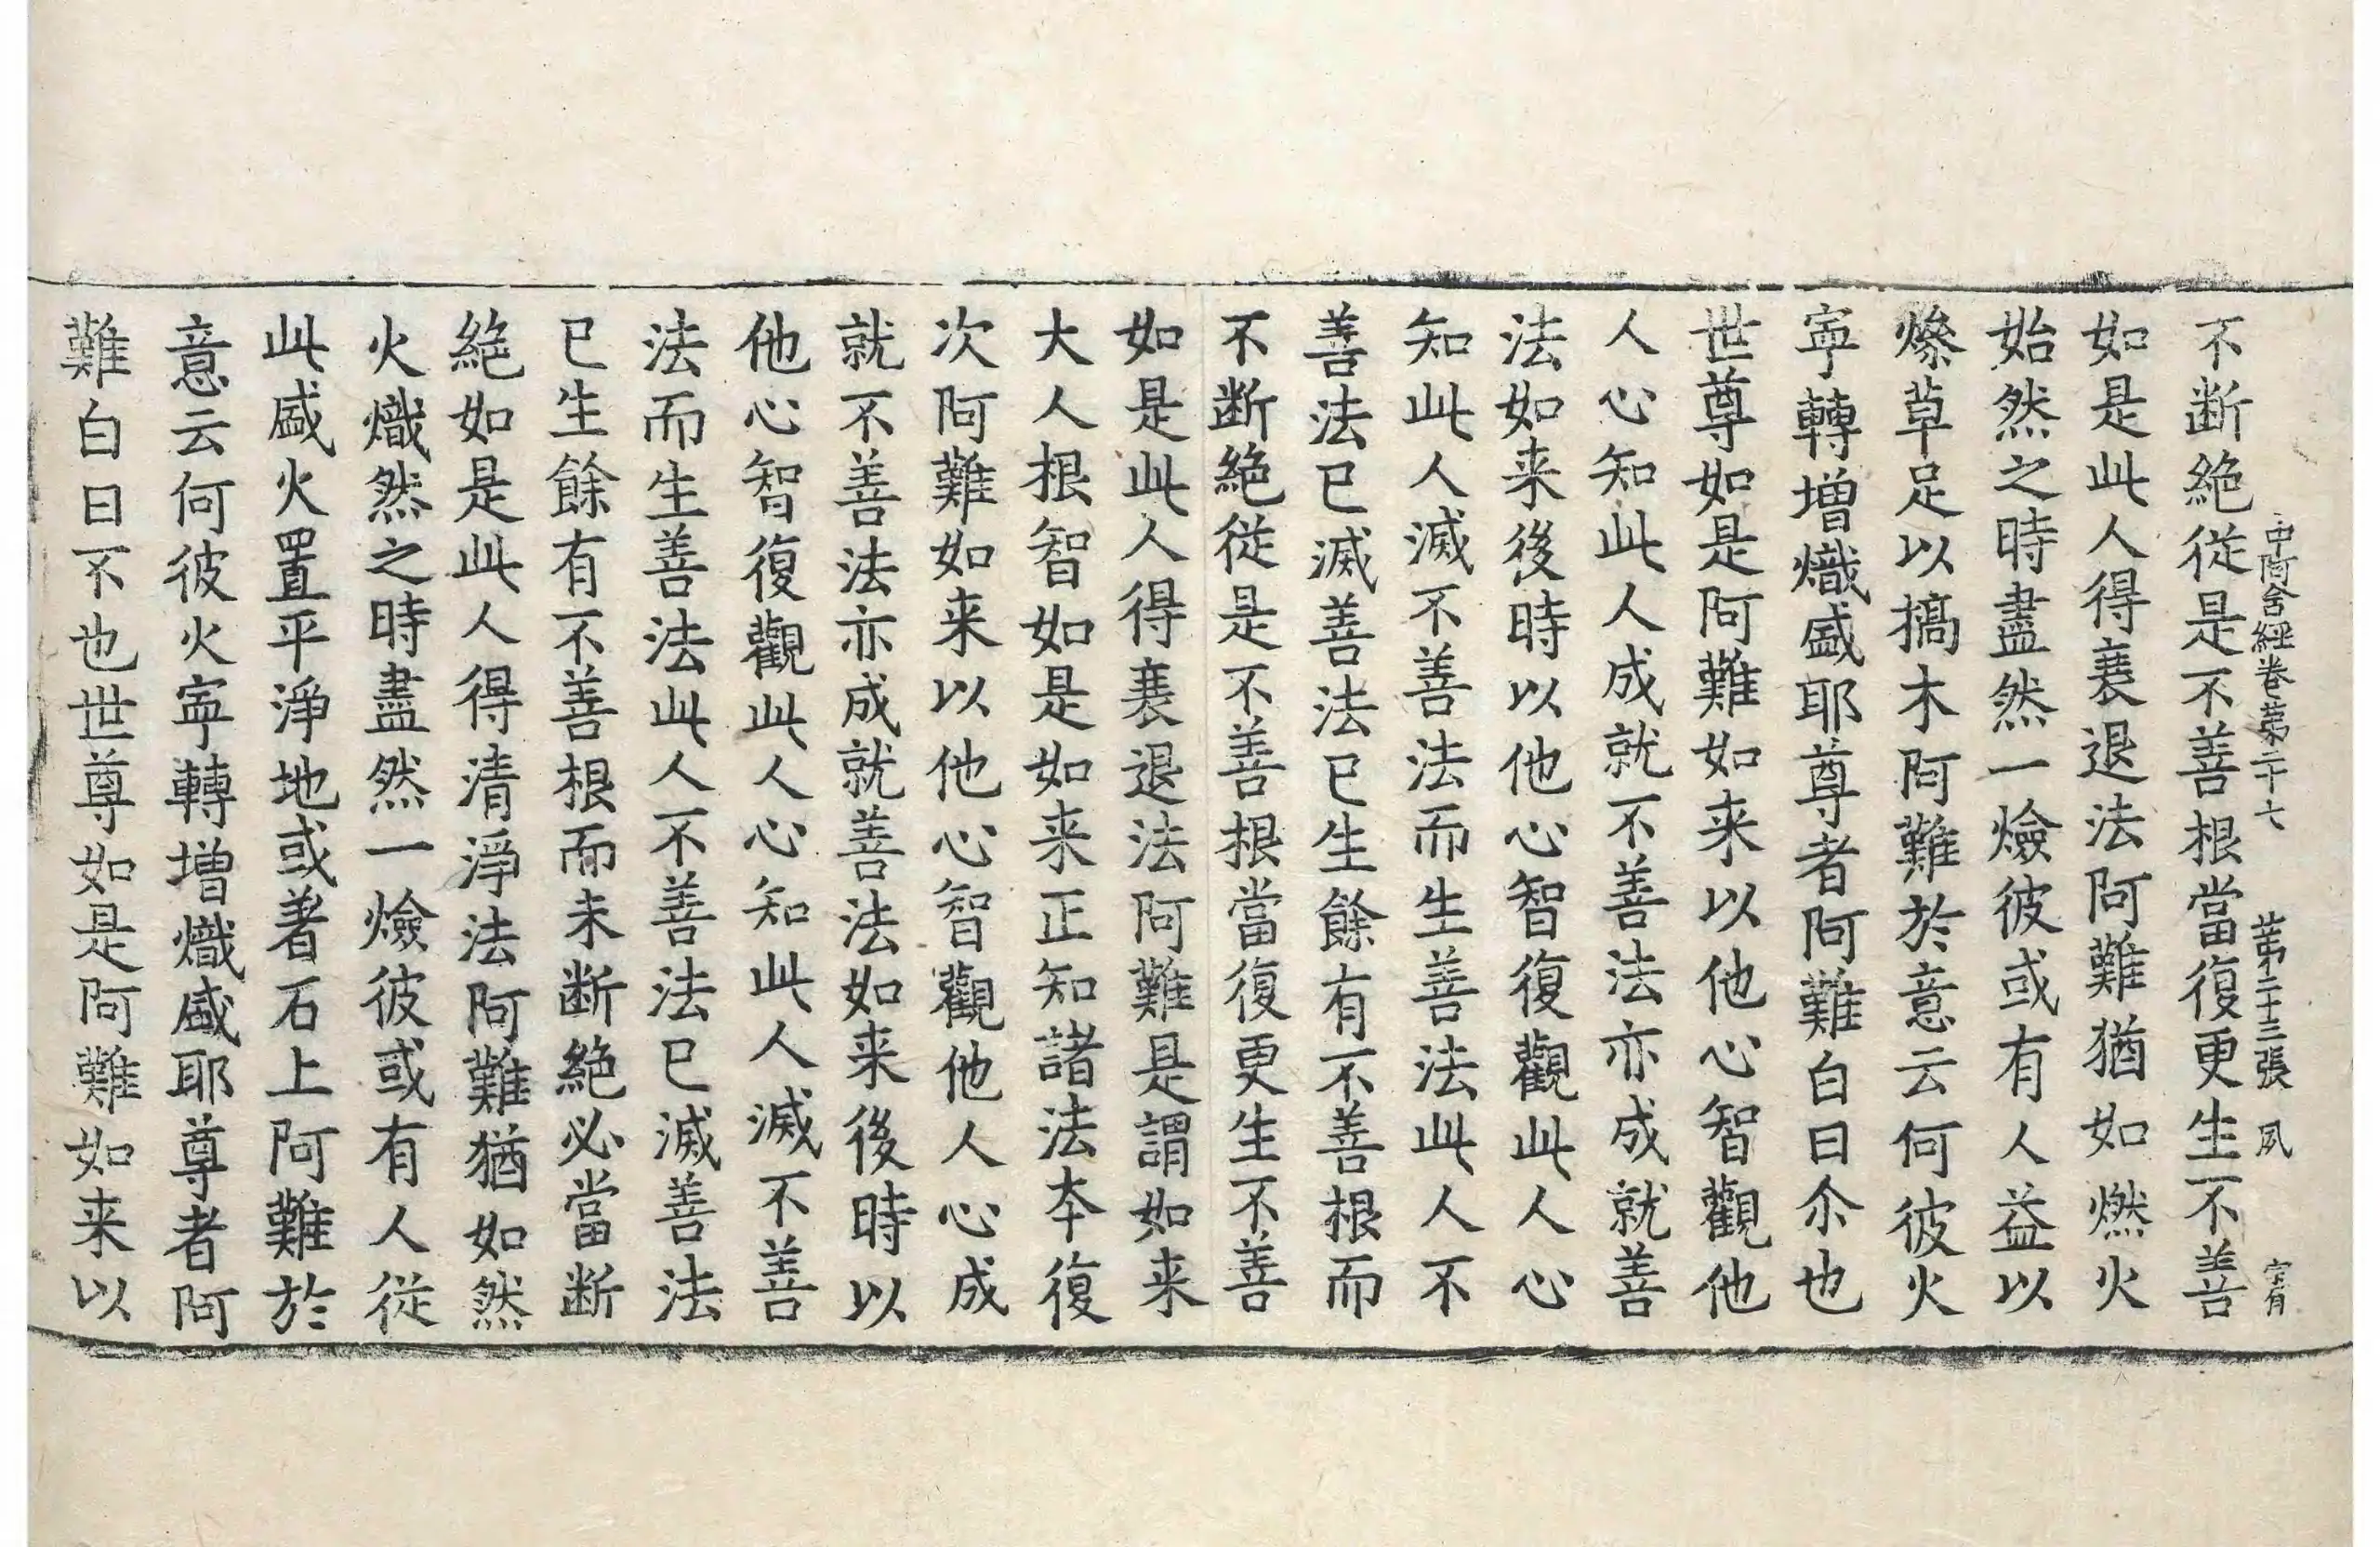 中阿含經卷第二十七　第二十三張　夙　宝有
不断絕從是不善根當復更生不善
如是此人得衰退法阿難猶如燃火
始然之時盡然一燄彼或有人益以
燥草足以槁木阿難於意云何彼火
寧轉增熾盛耶尊者阿難白曰尒也
世尊如是阿難如来以他心智觀他
人心知此人成就不善法亦成就善
法如来後時以他心智復觀此人心
知此人滅不善法而生善法此人不
善法已滅善法已生餘有不善根而
不断絕從是不善根當復更生不善
如是此人得衰退法阿難是謂如来
大人根智如是如来正知諸法本復
次阿難如来以他心智觀他人心成
就不善法亦成就善法如来後時以
他心智復觀此人心知此人滅不善
法而生善法此人不善法已滅善法
已生餘有不善根而未断絕必當断
絕如是此人得清淨法阿難猶如然
火熾然之時盡然一燄彼或有人從
此盛火置平淨地或著石上阿難於
意云何彼火寧轉增熾盛耶尊者阿
難白曰不也世尊如是阿難如来以